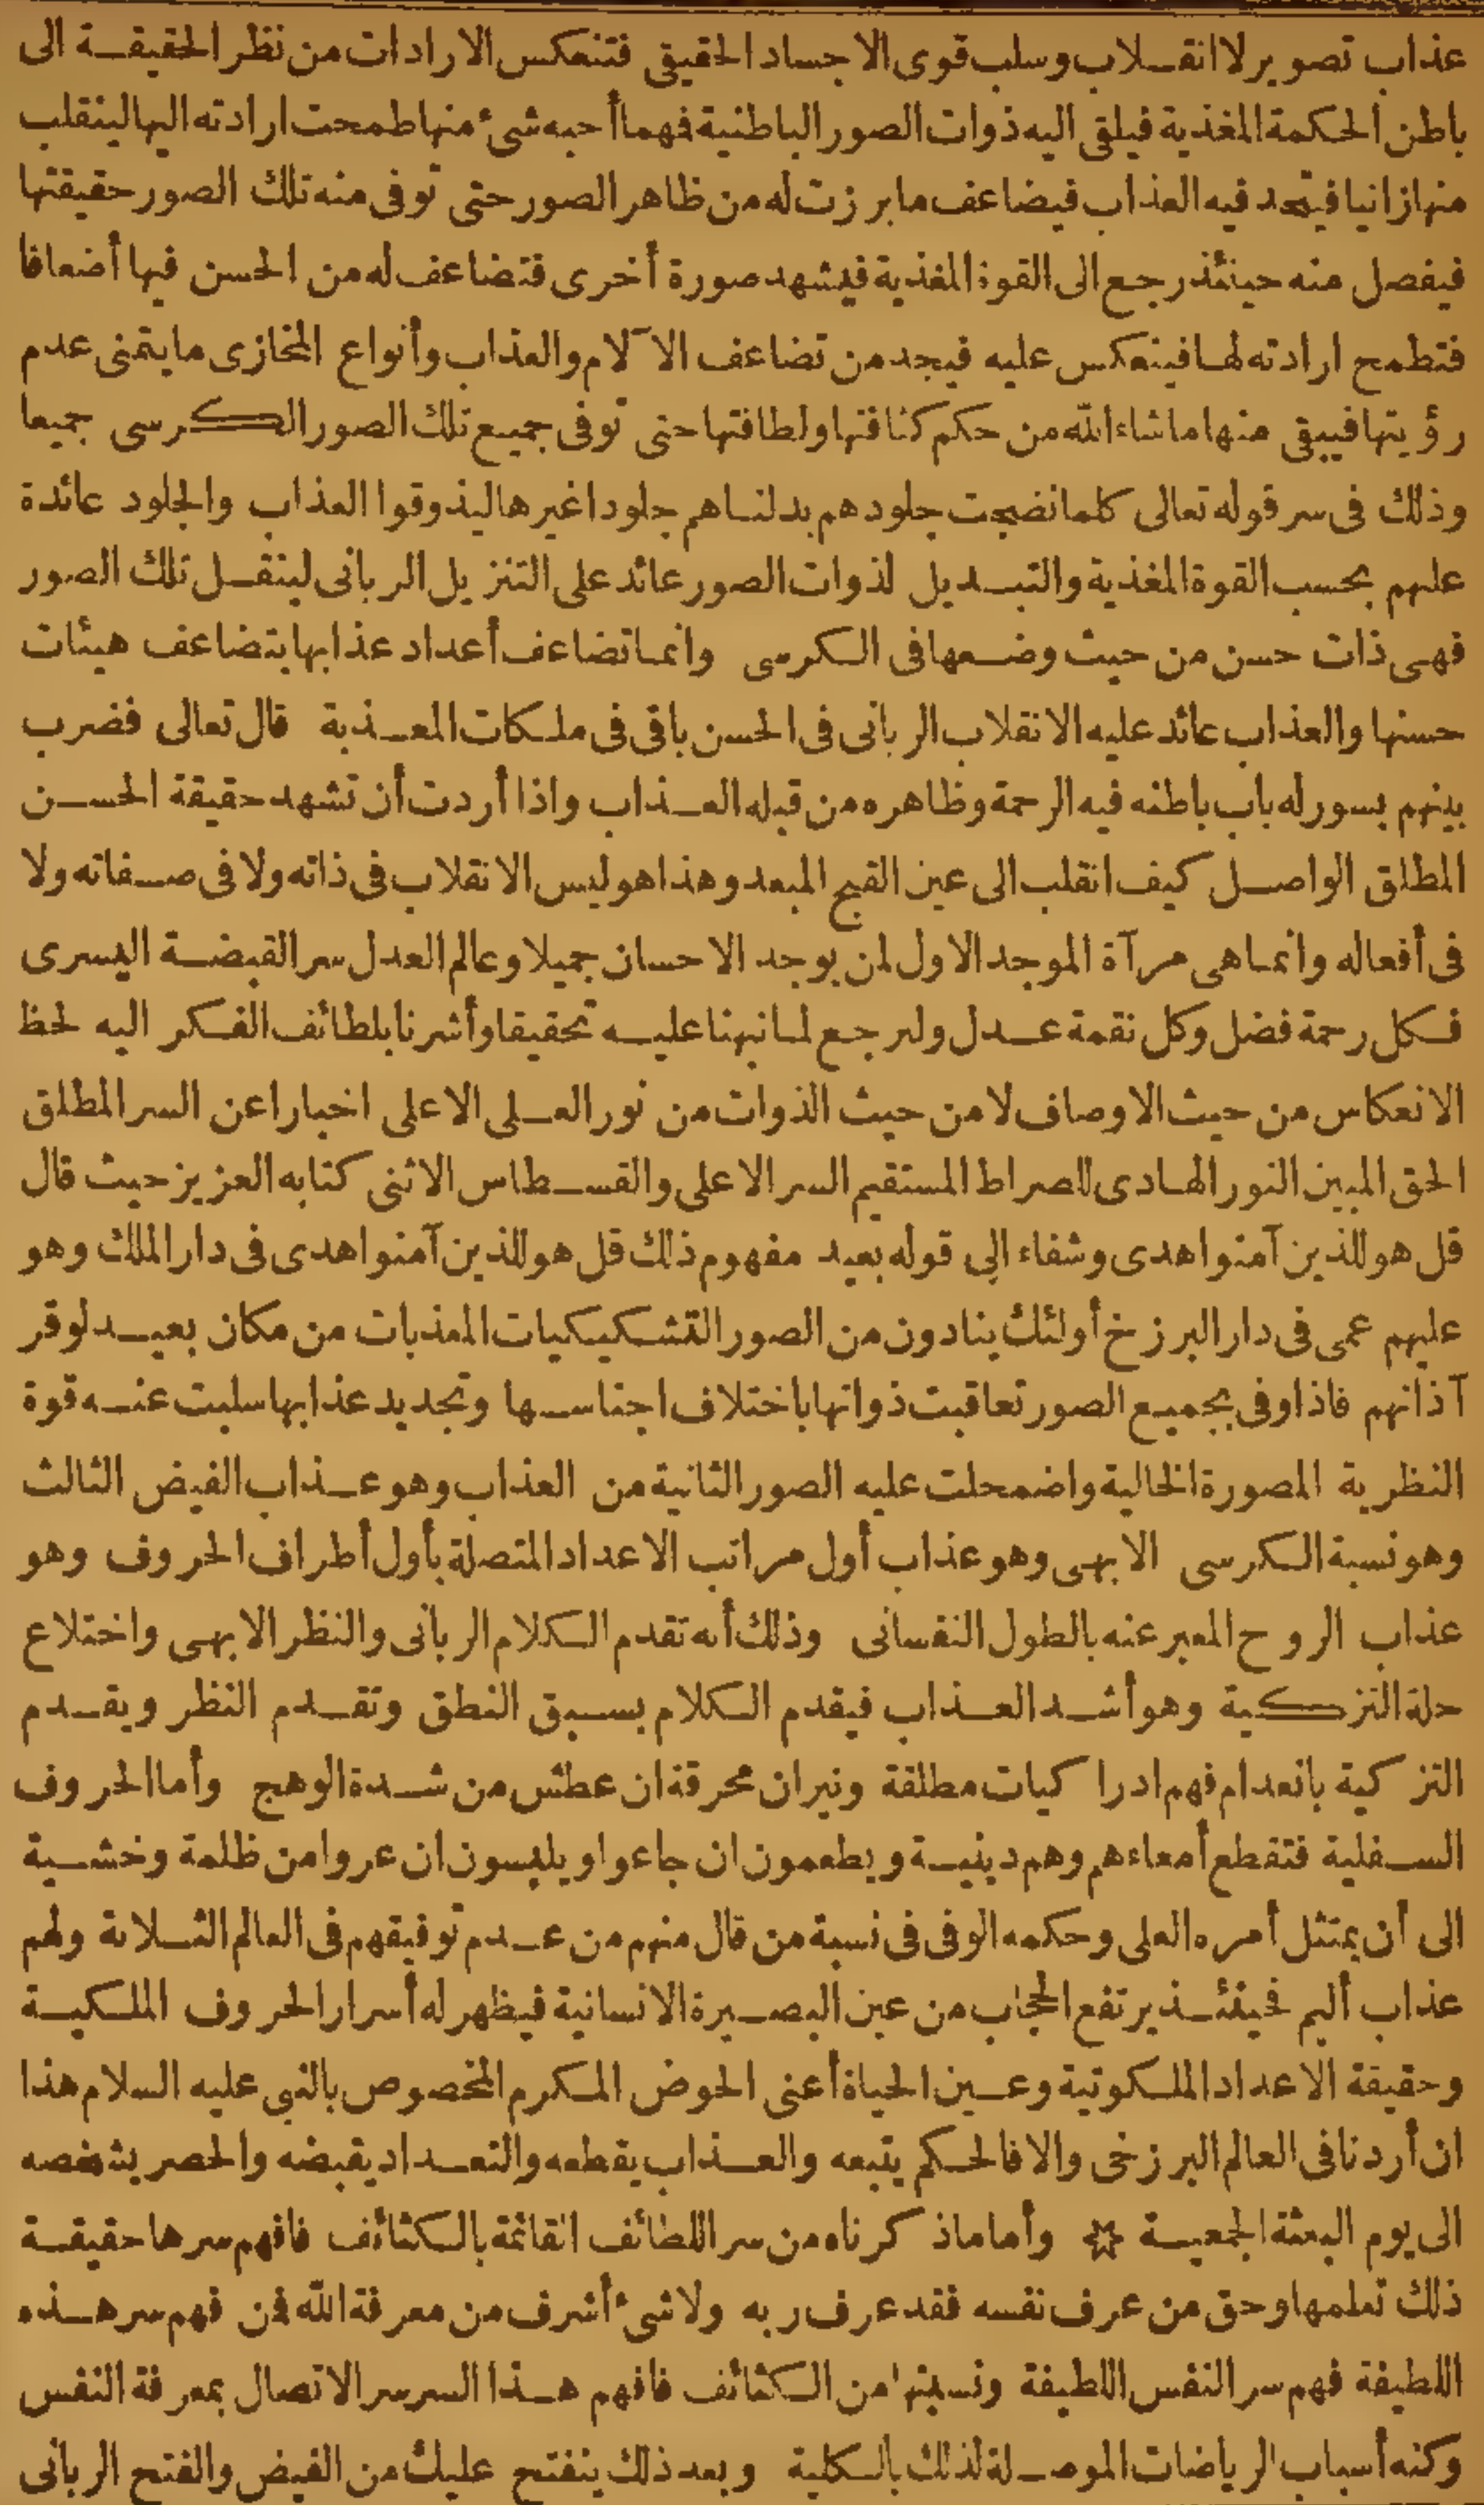 عذاب تصوير لا انقلاب وسلب قوى الاجساد الحقيقى فتنعكس الارادات من نظر الحقيقة الى
باطن الحكمة المغذية فيلقى اليه ذوات الصور الباطنية فهما أحبه شئ منها طمحت ارادته اليها لينقلب
منها زانيا فيتحد فيه العذاب فيضاعف ما برزت له من ظاهر الصور حتى توفى منه تلك الصور حقيقتها
فيفصل منه حينئذ رجع الى القوة المغذية فيشهد صورة أخرى فتضاعف له من الحسن فيها أضعافا
فتطمح ارادته لها فينعكس عليه فيجد من تضاعف الآلام والعذاب وأنواع المخازى ما يتمنى عدم
رؤيتها فيبقى منها ما شاء الله من حكم كثافتها ولطافتها حتى توفى جميع تلك الصور الكرسى جميعا
وذلك فى سر قوله تعالى كلما نضجت جلودهم بدلناهم جلودا غيرها ليذوقوا العذاب والجلود عائدة
عليهم بحسب القوة المغذية والتبديل لذوات الصور عائد على التنزيل الربانى لينقل تلك الصور
فهى ذات حسن من حيث وضعها فى الكرسى وانما تضاعف أعداد عذابها بتضاعف هيئات
حسنها والعذاب عائد عليه الانقلاب الربانى فى الحسن باقى فى ملكات المعذبة قال تعالى فضرب
بينهم بسور له باب باطنه فيه الرحمة وظاهره من قبله العذاب واذا أردت أن تشهد حقيقة الحسن
المطلق الواصل كيف انقلب الى عين القبح المبعد وهذا هو ليس الانقلاب فى ذاته ولا فى صفاته ولا
فى أفعاله وانما هى مرآة الموجد الاول لمن يوجد الاحسان جميلا وعالم العدل سر القبضة اليسرى
فكل رحمة فضل وكل نقمة عدل ولنرجع لما نبهنا عليه تحقيقا وأشرنا بلطائف الفكر اليه لحظ
الانعكاس من حيث الاوصاف لا من حيث الذوات من نور العلى الاعلى اخبارا عن السر المطلق
الحق المبين النور الهادى للصراط المستقيم السر الاعلى والقسطاس الاثنى كتابه العزيز حيث قال
قل هو للذين آمنوا هدى وشفاء الى قوله بعيد مفهوم ذلك قل هو للذين آمنوا هدى فى دار الملك وهو
عليهم عمى فى دار البرزخ أولئك ينادون من الصور التشكيكيات المعذبات من مكان بعيد لوقر
آذانهم فاذا وفى بجميع الصور تعاقبت ذواتها باختلاف اجناسها وتجديد عذابها سلبت عنه قوة
النظرية المصورة الخالية واضمحلت عليه الصور الثانية من العذاب وهو عذاب الفيض الثالث
وهو نسبة الكرسى الابهى وهو عذاب أول مراتب الاعداد المتصلة بأول أطراف الحروف وهو
عذاب الروح المعبر عنه بالطول النفسانى وذلك أنه تقدم الكلام الربانى والنظر الابهى واختلاع
حلة التزكية وهو أشد العذاب فيقدم الكلام بسبق النطق وتقدم النظر ويقدم
التزكية بانعدام فهم ادراكيات مطلقة ونيران محرقة ان عطش من شدة الوهج وأما الحروف
السفلية فتقطع أمعاءهم وهم دينية ويطعمون ان جاعوا ويلبسون ان عروا من ظلمة وخشية
الى أن يمتثل أمره العلى وحكمه الوفى فى نسبة من قال منهم من عدم توفيقهم فى العالم الثلاثة ولهم
عذاب أليم فحينئذ يرتفع الحجاب من عين البصيرة الانسانية فيظهر له أسرار الحروف الملكية
وحقيقة الاعداد الملكوتية وعين الحياة أعنى الحوض المكرم المخصوص بالنبى عليه السلام هذا
ان أردنا فى العالم البرزخى والا فالحكم يتبعه والعذاب يقطعه والتعداد يقبضه والحصر يشخصه
الى يوم البعثة الجمعية ☆ وأما ما ذكرناه من سر اللطائف القائمة بالكثائف فافهم سرها حقيقة
ذلك تعلمها وحق من عرف نفسه فقد عرف ربه ولا شئ أشرف من معرفة الله فمن فهم سر هذه
اللطيفة فهم سر النفس اللطيفة ونسبتها من الكثائف فافهم هذا السر سر الاتصال بمعرفة النفس
وكنه أسباب الرياضات الموصلة لذلك بالكلية وبعد ذلك ينفتح عليك من الفيض والفتح الربانى